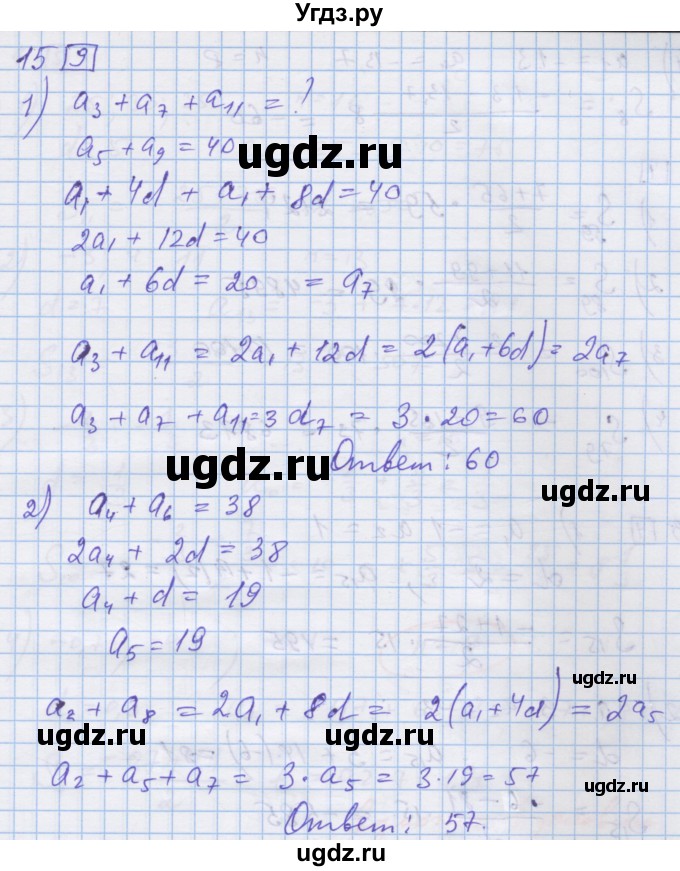 Угдз.ру
15 9
1) a₃ + a₇ + a₁₁ = ?
a₅ + a₉ = 40
ugdz.ru
a₁ + 4d + a₁ + 8d = 40
ugdz.ru
2a₁ + 12d = 40
a₁ + 6d = 20 = a₇
a₃ + a₁₁ = 2a₁ + 12d = 2(a₁ + 6d) = 2a₇
a₃ + a₇ + a₁₁ = 3 d₇ = 3 · 20 = 60
ugdz.ru
Ответ: 60
ugdz.ru
2) a₄ + a₆ = 38
2a₄ + 2d = 38
a₄ + d = 19
a₅ = 19
ugdz.ru
a₂ + a₈ = 2a₁ + 8d = 2(a₁ + 4d) = 2a₅
ugdz.ru
ugdz.ru
a₂ + a₅ + a₇ = 3 · a₅ = 3 · 19 = 57
Ответ: 57.
ugdz.ru
ugdz.ru